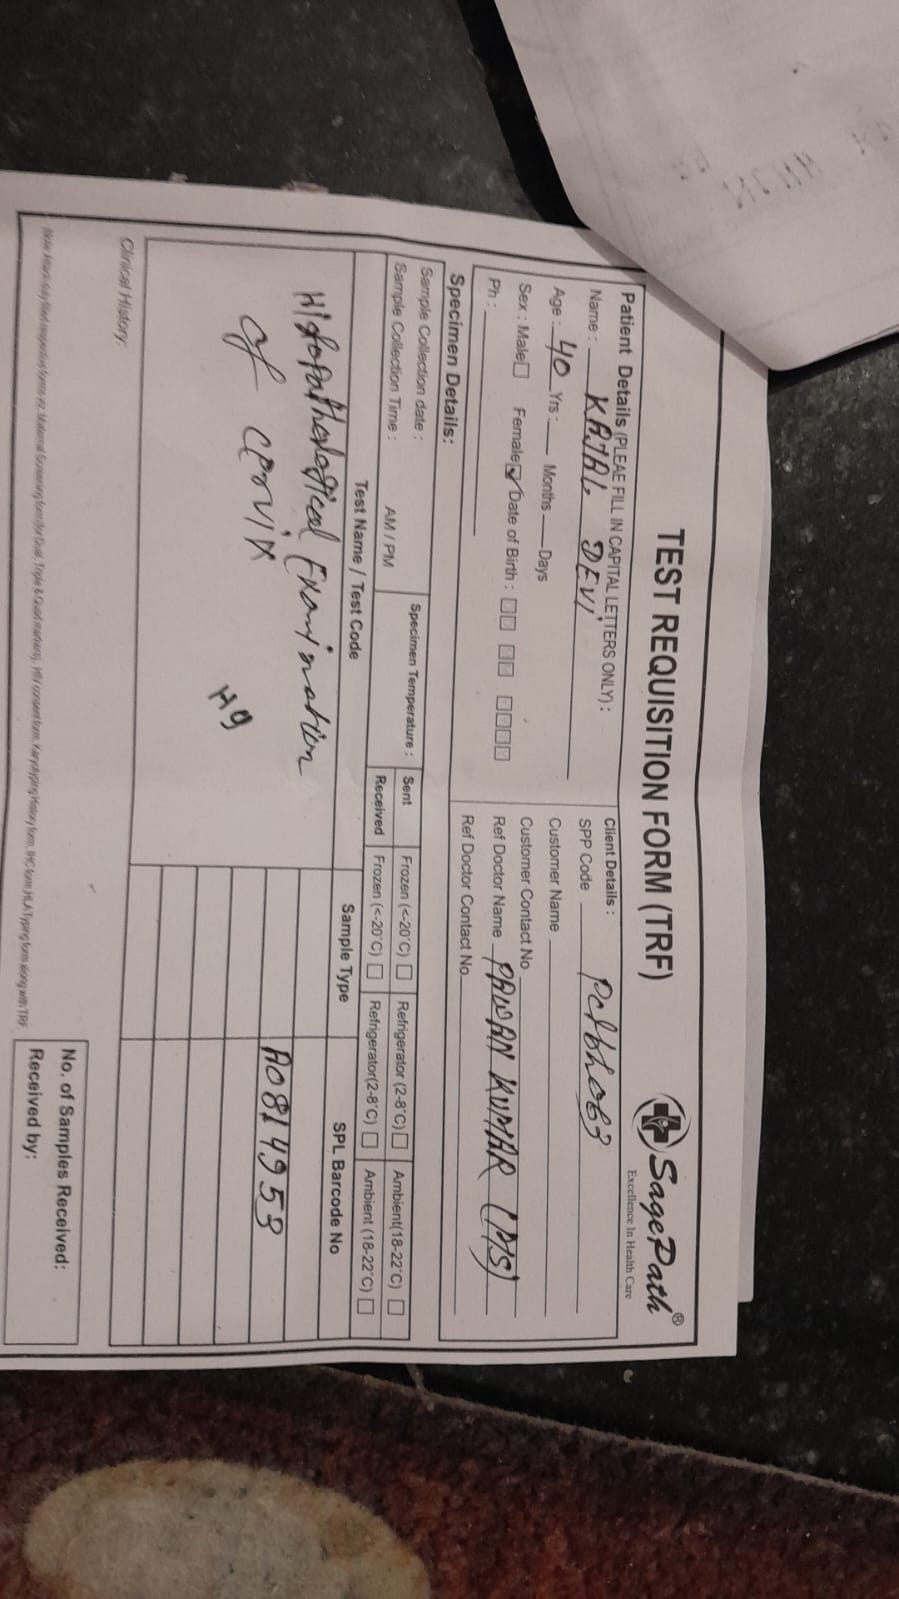 TEST REQUISITION FORM (TRF)
SagePath®
Excellence In Health Care
Patient Details (PLEAE FILL IN CAPITAL LETTERS ONLY) :
Name : KAJAL DEVI
Age : 40 Yrs : Months Days
Sex : Male Female Date of Birth :
Ph :
Client Details :
SPP Code
Customer Name
Customer Contact No
Ref Doctor Name PAWAN KUMAR
Ref Doctor Contact No
Specimen Details:
Sample Collection date :
Sample Collection Time : AM / PM
Specimen Temperature :
Sent Frozen (<-20°C) Refrigerator (2-8°C) Ambient(18-22°C)
Received Frozen (<-20°C) Refrigerator(2-8°C) Ambient (18-22°C)
Test Name / Test Code Sample Type SPL Barcode No
Histopathological Examination
of cervix
A0814953
Clinical History:
No. of Samples Received:
Received by: